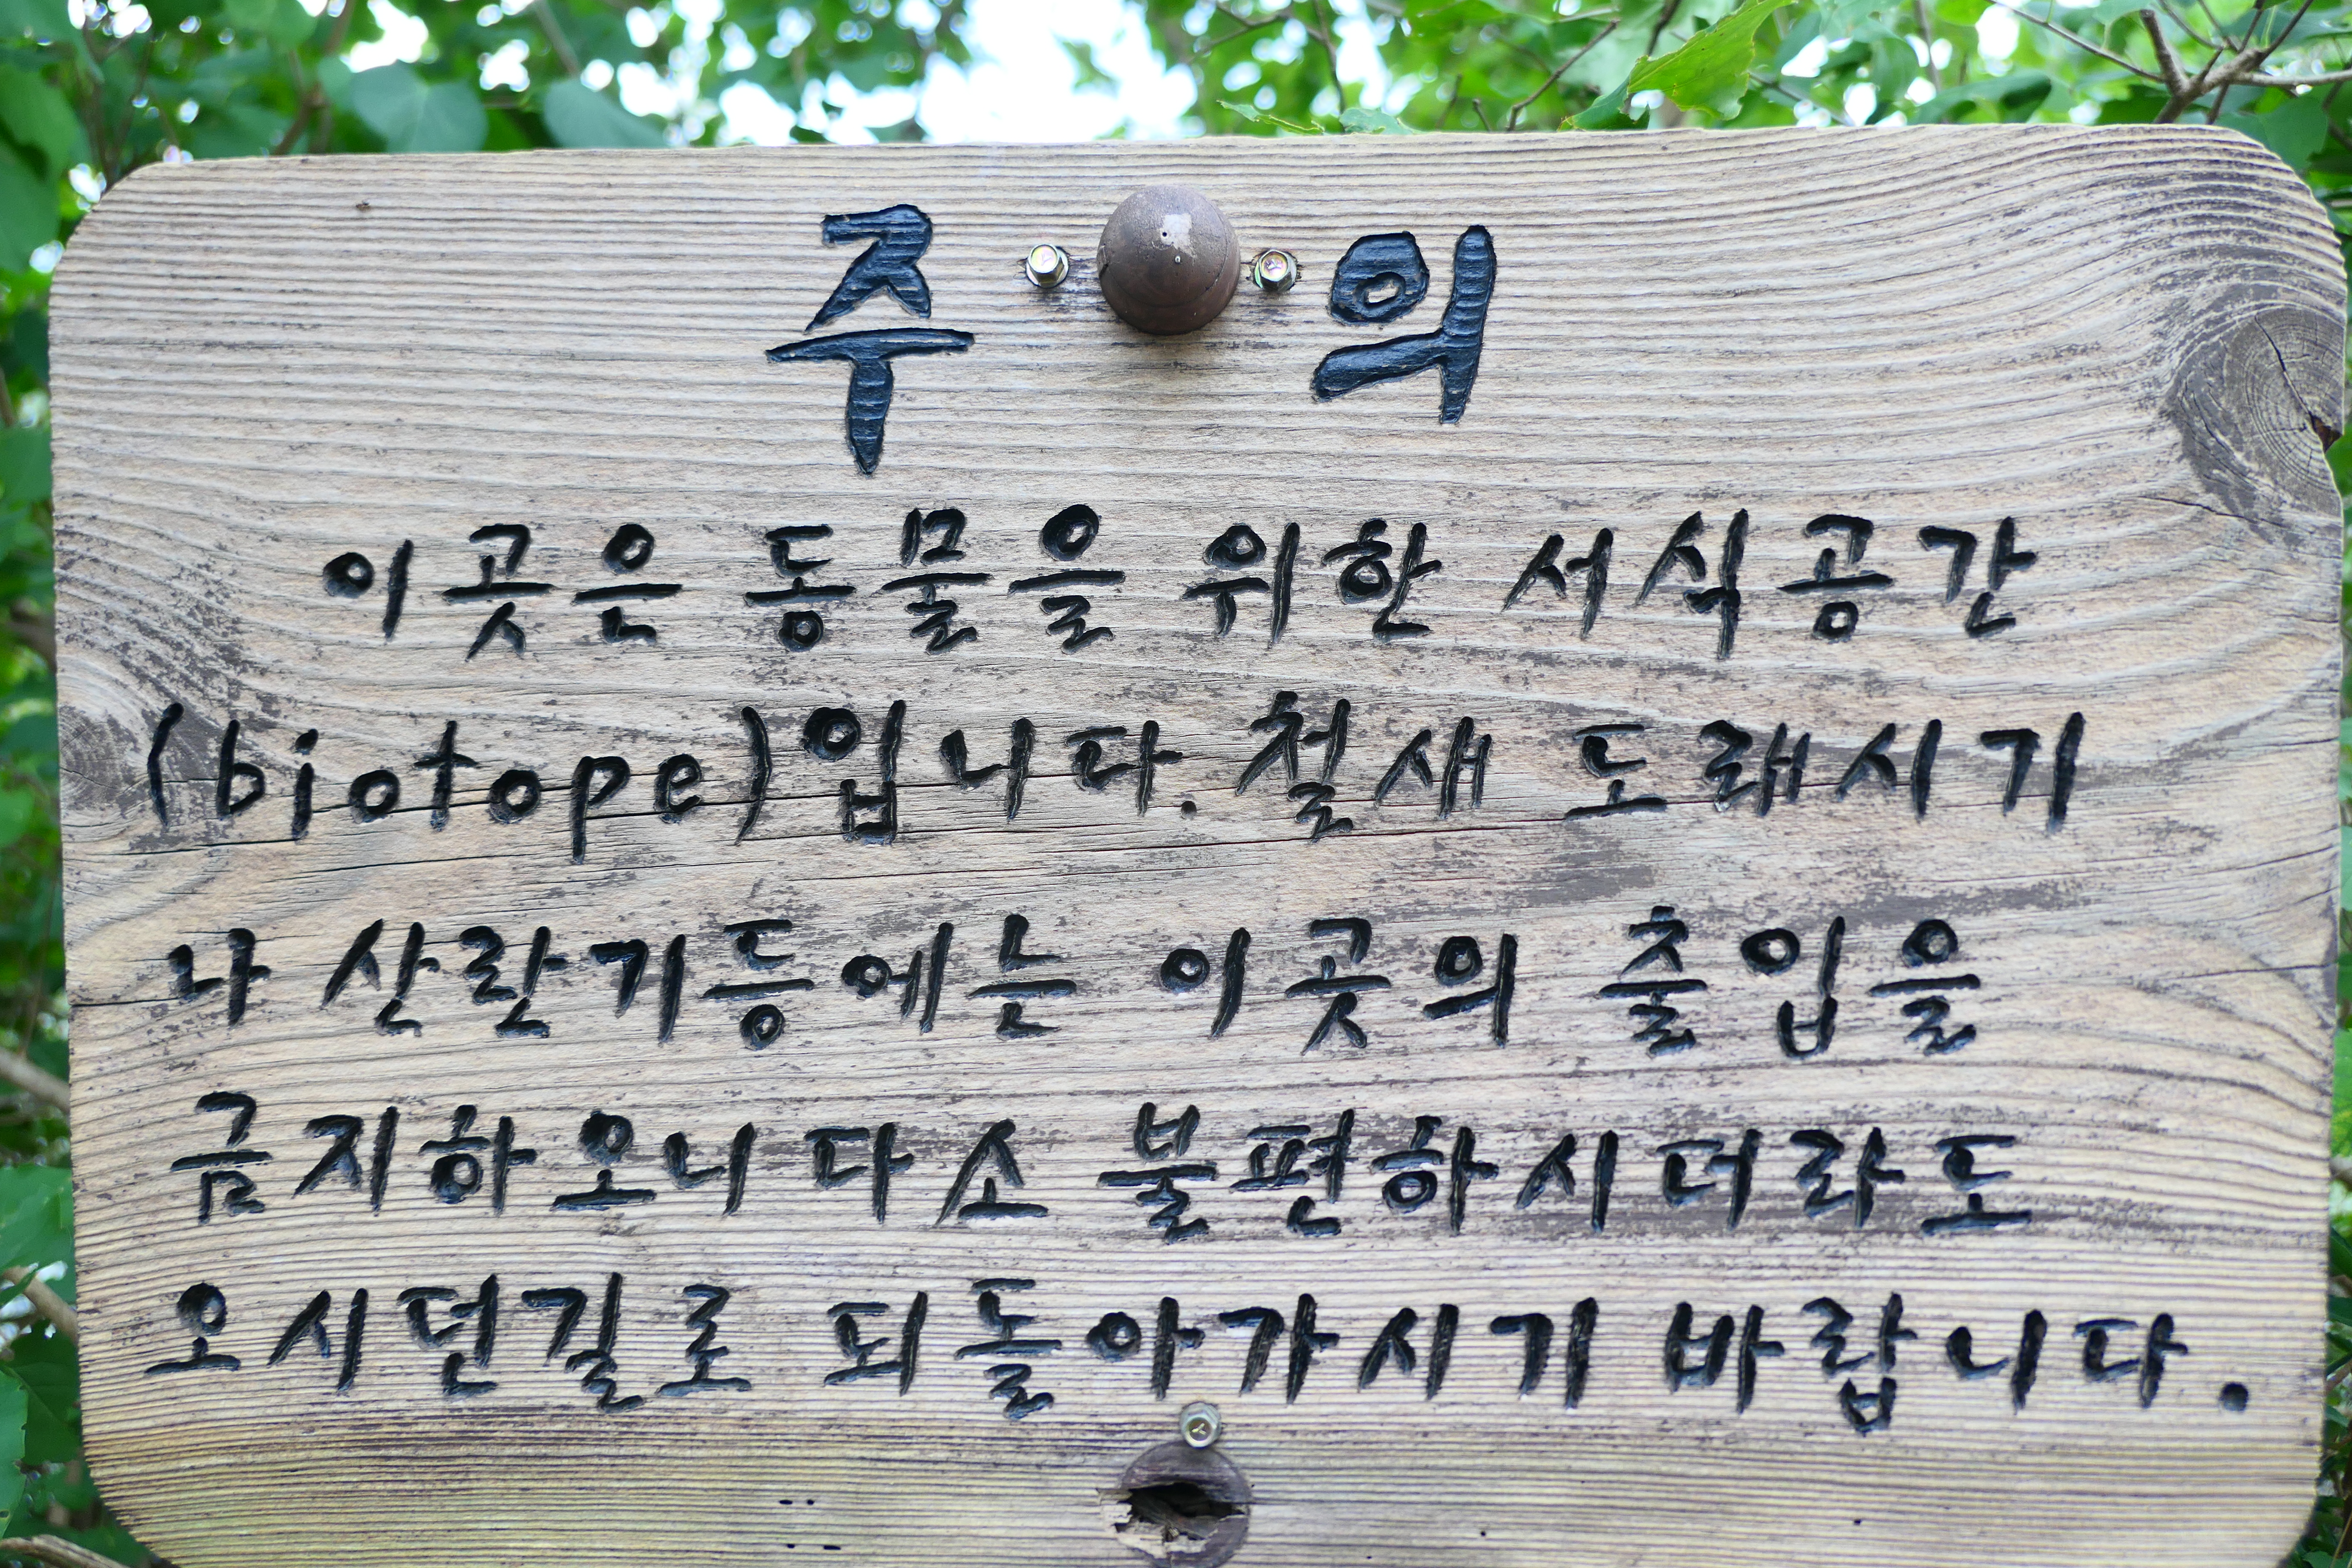 주 의
이곳은 동물을 위한 서식공간
(biotope)입니다. 철새 도래시기
나 산란기등에는 이곳의 출입을
금지하오니 다소 불편하시더라도
오시던길로 되돌아가시기 바랍니다.